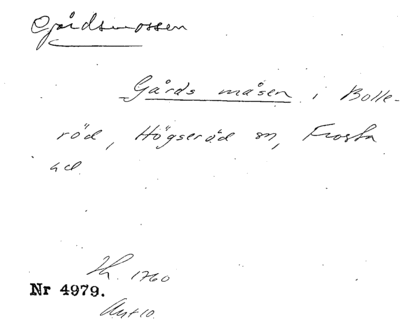 Gårdsmossen
Gårds måsen i Bolle-
röd, Högseröd sn, Frosta
hd.
1760
Nr 4979.